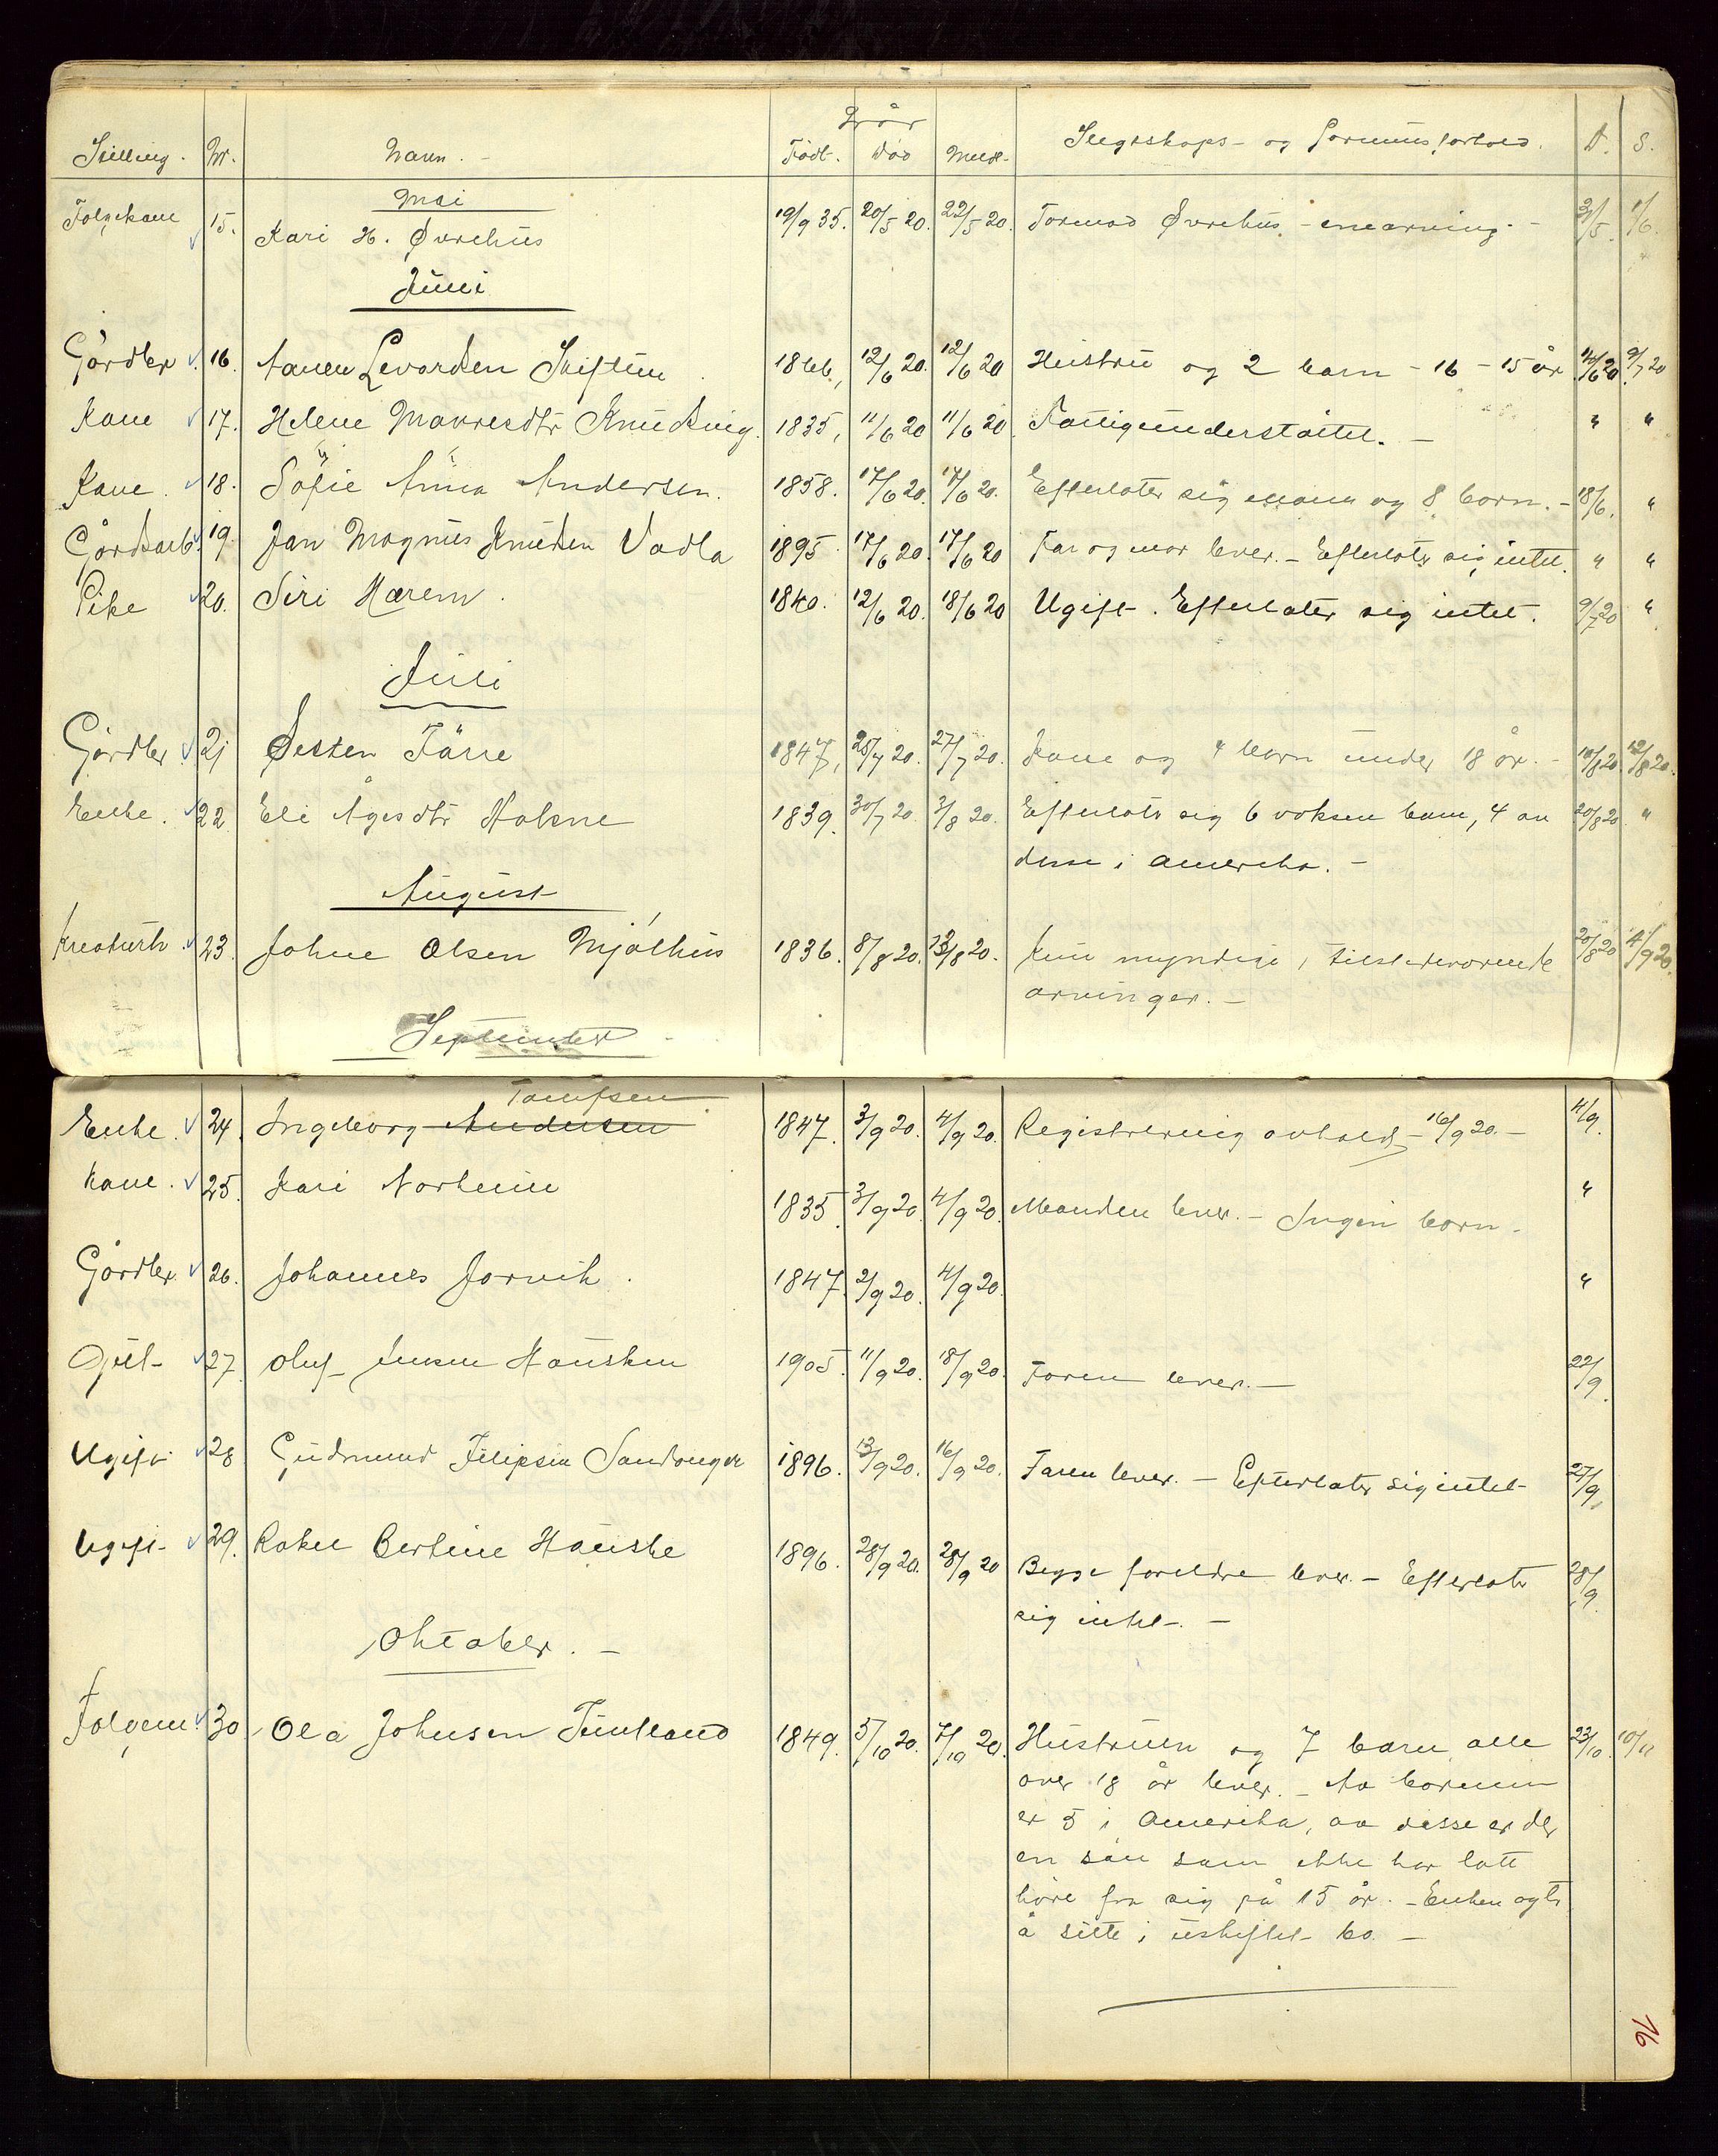 År
Stilling. Nr. Navn. - Født. Død Meld. Slegskaps- og formuesforhold. D. S.
Mai
Folgekane 15. Kari H. Øvrehus 19/9 35. 20/5 20. 22/5 20. Tormod Øvrehus. - enearving. - 31/5. 1/6.
Juni
Gårdbr. 16. Levordsen 1866, 12/6 20. 12/6 20 Hustru og 2 barn - 16 - 15 år 14/6 20 9/7 20
Kone 17. Helene 1835, 11/6 20 11/6 20. Fattigunderstøttet. - " "
Kone. 18. Sofie Anna Andersen. 1858. 17/6 20. 17/6 20. Efterlater sig mann og 8 born. - 18/6. "
Gårdsarb. 19. Jan Magnus Knudsen Vadla 1895 17/6 20. 17/6 20 Far og mor lever. - Efterlater sig intet. " "
Pike 20. Siri Harem. 1840. 12/6 20. 18/6 20 Ugift. Efterlater sig intet. 9/7 20 "
Juli
Gårdbr. 21 Østen Tärre 1847, 25/7 20. 27/7 20. Kone og 4 born under 18 år. - 10/8 20 12/8 20.
Enke. 22 Eli Ågesdtr 1839. 30/7 20. 3/8 20. Efterlater sig 6 voksen barn, 4 av 20/8 20 "
disse i Amerika. -
August
23. Johne Olsen Mjølhus 1836. 8/8 20. 13/8 20. Kun myndige, tilstedeværende 20/8 20 4/9 20.
arvinger. -
September
Enke. 24. Ingeborg Andersen 1847. 3/9 20. 4/9 20. Registrering avholdt - 16/9 20. - 4/9.
Kone. 25. Kari Norheim 1835. 3/9 20. 4/9 20. Manden lever. - Ingen born -  "
Gårdbr. 26. Johannes Jorvik. 1847 2/9 20. 4/9 20. "
27. Oluf Jensen Hausken 1905. 11/9 20. 18/9 20. Faren lever. - 22/9.
Ugift 28 Gudmund Filipsen Sandanger 1896. 13/9 20. 16/9 20. Faren lever. - Efterlater sig intet 27/9.
Ugift 29. Rakel Bertine Hauske 1896. 28/9 20. 28/9 20 Begge foreldre lever. - Efterlater 28/9.
sig intet. -
Oktober. -
Folgem. 30 Ola Johnsen Tuntland 1849. 5/10 20. 7/10 20. Hustruen og 7 barn alle 23/10. 10/11
over 18 år lever. - Av bornene
er 5 i Amerika, av disse er der
en sön som ikke har latt
höre fra sig på 15 år. - Enken agter
å sitte i uskiftet bo. -
16